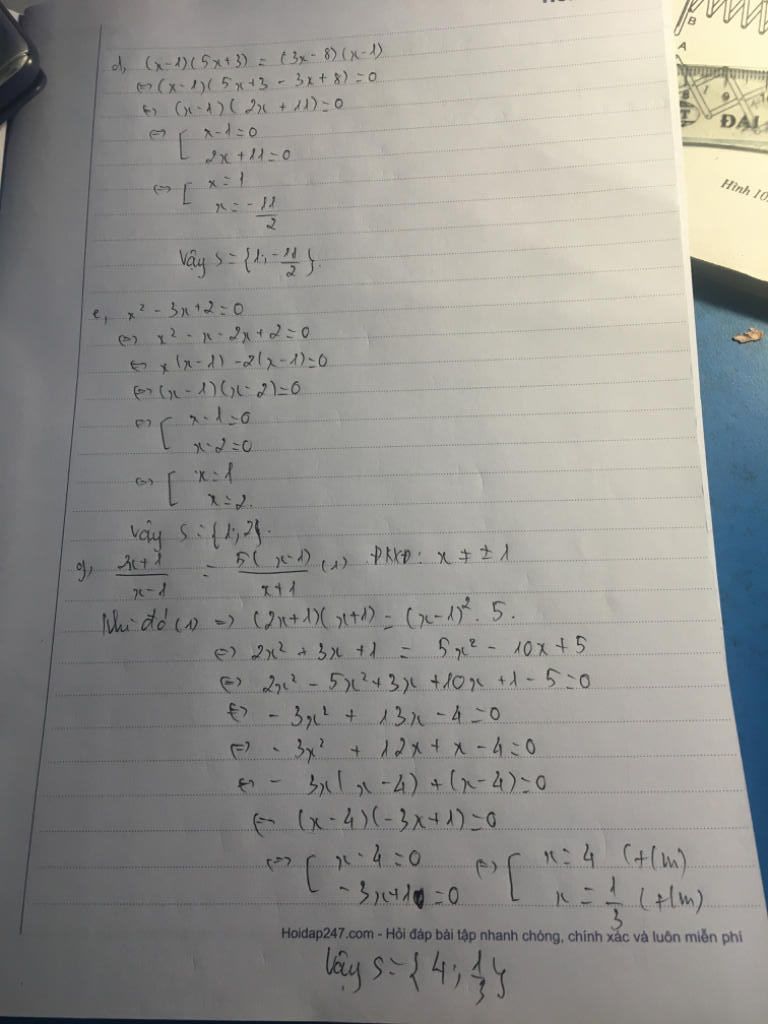 d, (x-1)(5x+3) = (3x-8)(x-1)
⇔ (x-1)(5x+3-3x+8)=0
⇔ (x-1)(2x+11)=0
⇔ [ x-1=0
2x+11=0
⇔ [ x=1
x=-11/2
Vậy S={1;-11/2}.
e, x²-3x+2=0
⇔ x²-x-2x+2=0
⇔ x(x-1)-2(x-1)=0
⇔ (x-1)(x-2)=0
⇔ [ x-1=0
x-2=0
⇔ [ x=1
x=2.
Vậy S={1;2}.
g, 2x+1/x-1 = 5(x-1)/x+1 (1) ĐKXĐ: x ≠ ±1
Khi đó (1) ⇒ (2x+1)(x+1)=(x-1)².5.
⇔ 2x²+3x+1 = 5x²-10x+5
⇔ 2x²-5x²+3x+10x+1-5=0
⇔ -3x²+13x-4=0
⇔ -3x²+12x+x-4=0
⇔ -3x(x-4)+(x-4)=0
⇔ (x-4)(-3x+1)=0
⇔ [ x-4=0 ⇔ [ x=4 (t/m)
-3x+1=0 x=1/3 (t/m)
Hoidap247.com - Hỏi đáp bài tập nhanh chóng, chính xác và luôn miễn phí
Vậy S={4;1/3}
B
A
ĐẠI
Hình 10